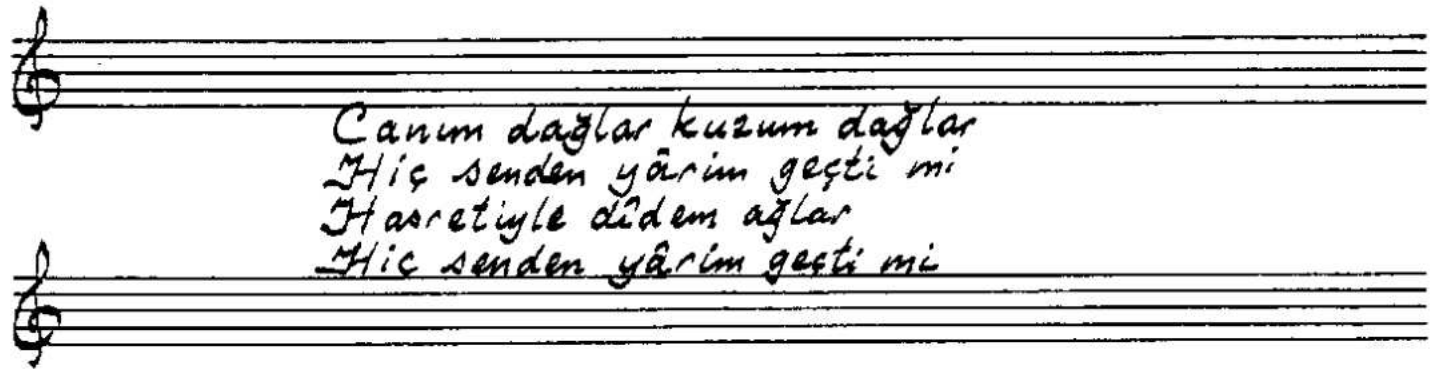 Canım dağlar kuzum dağlar
Hiç senden yârim geçti mi
Hasretiyle dîdem ağlar
Hiç senden yârim geçti mi